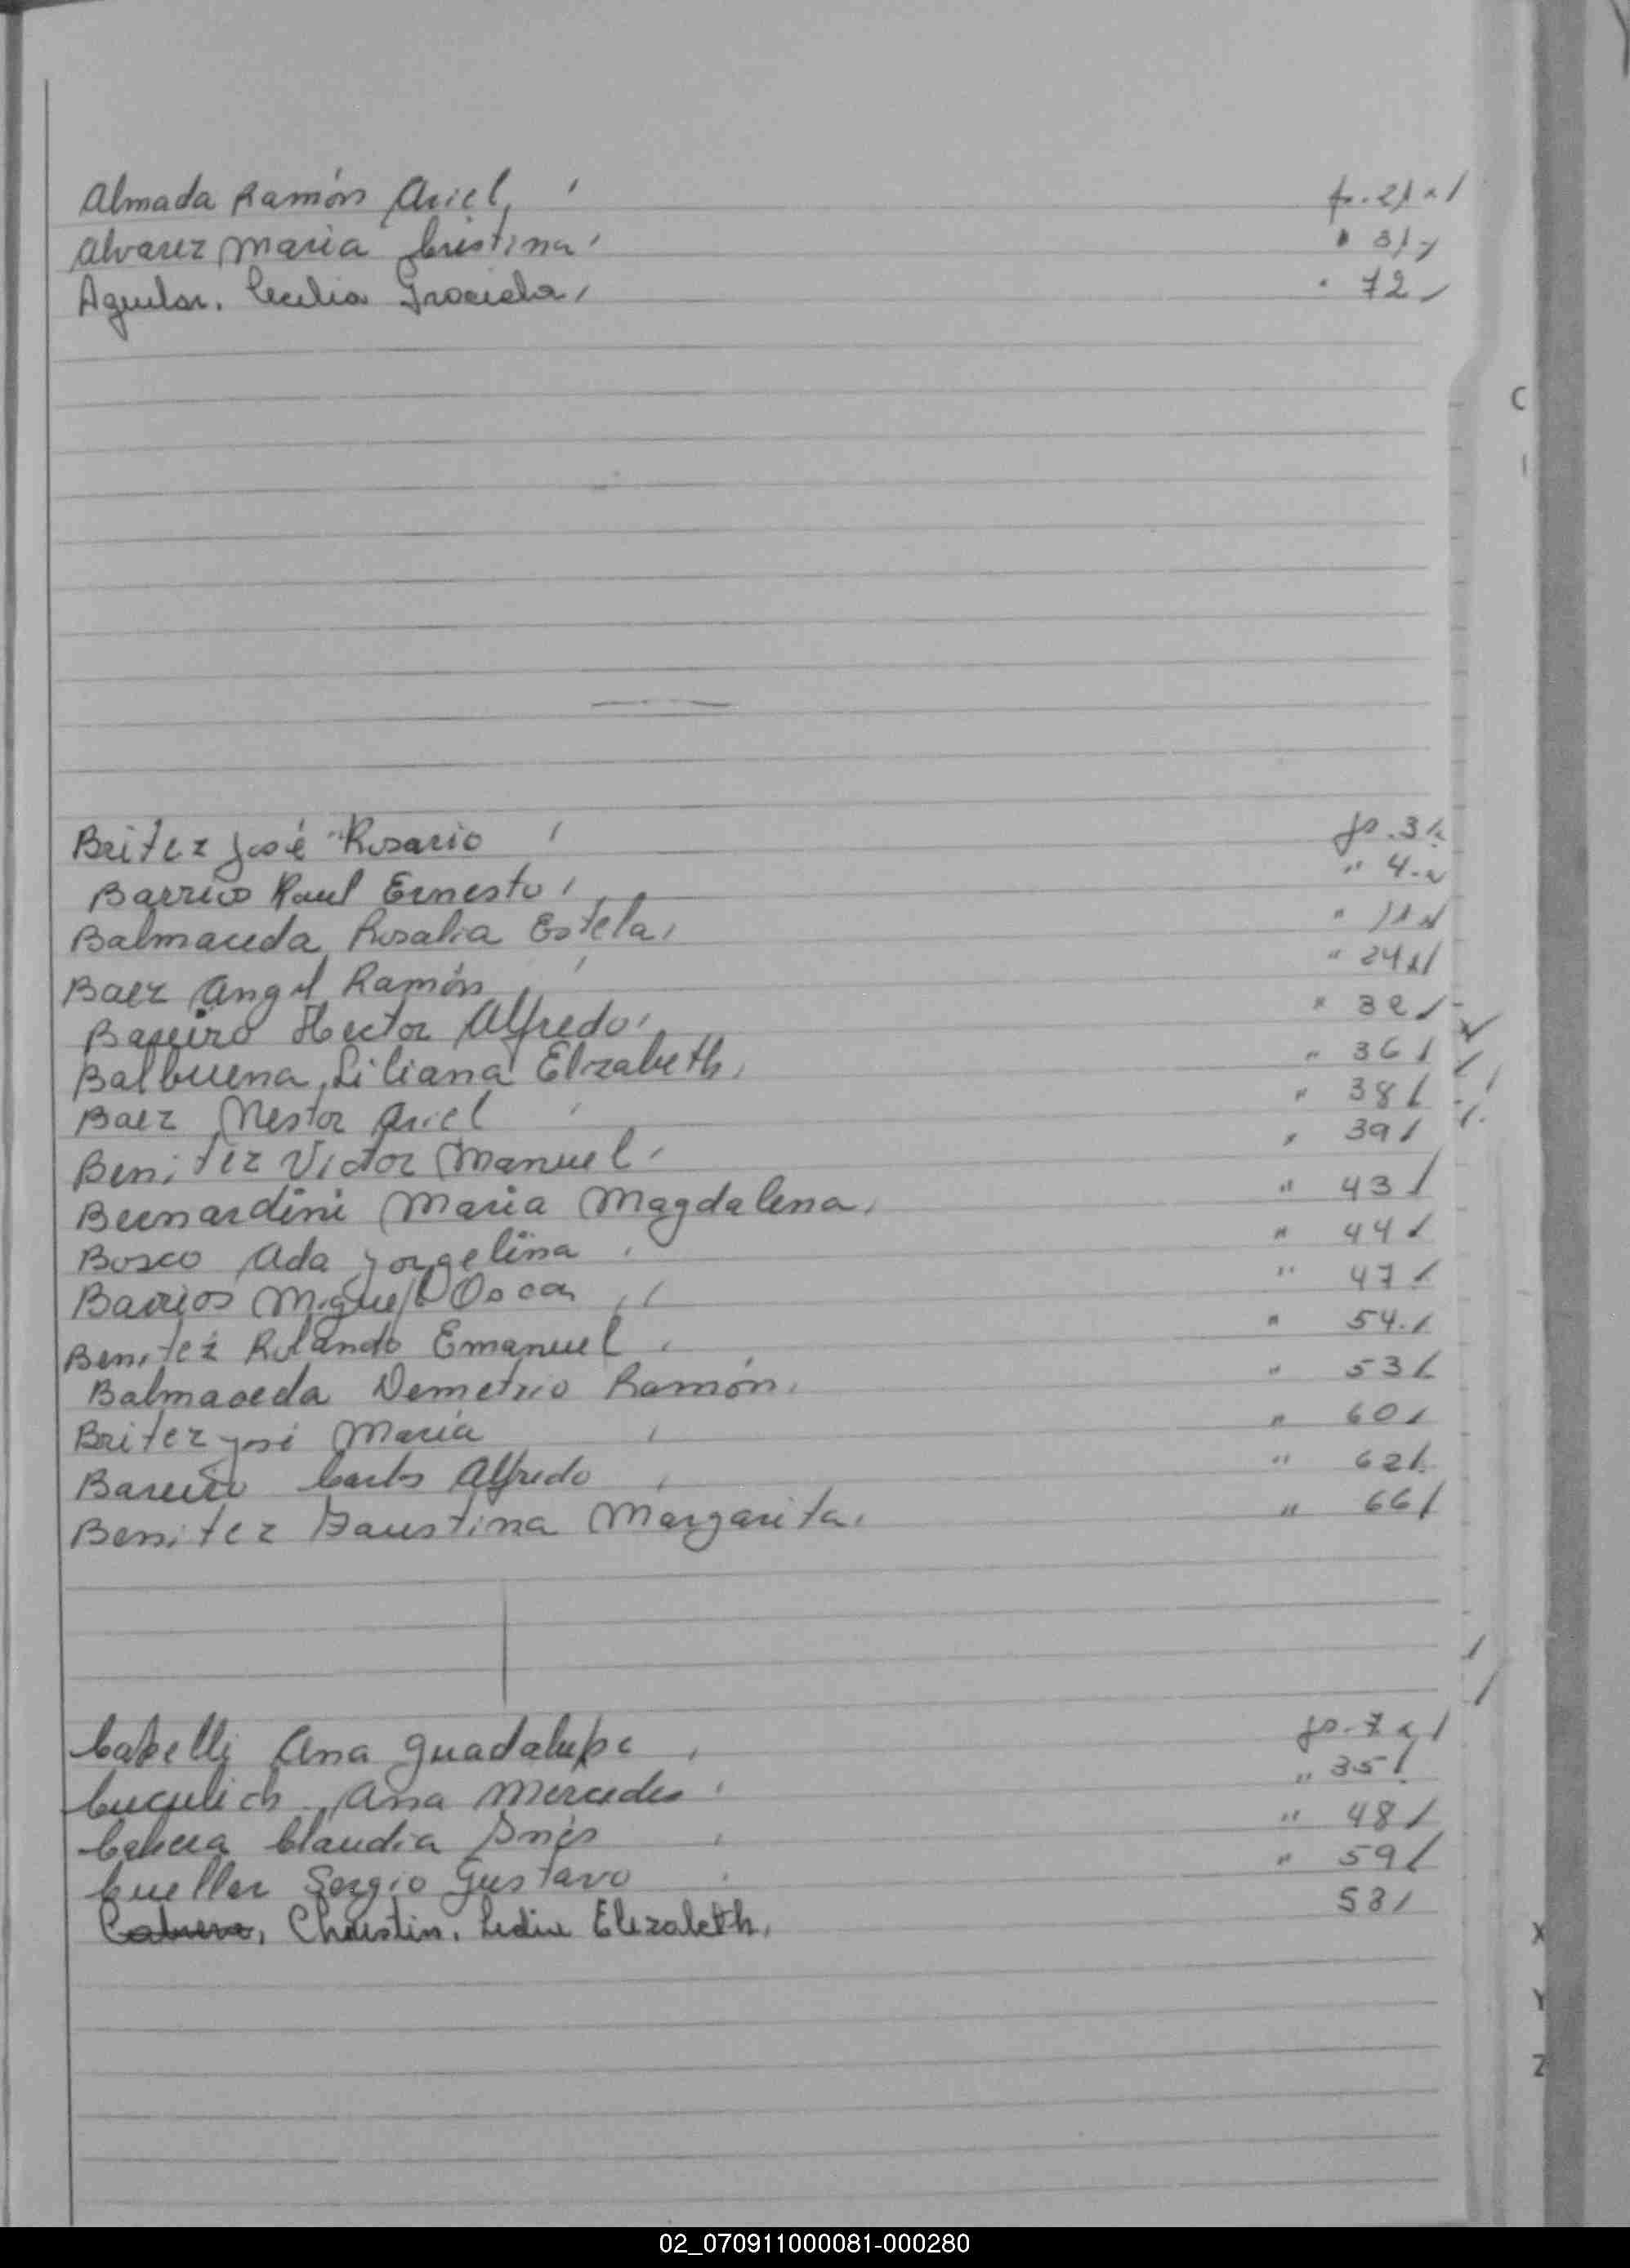 Almada Ramón Ariel, fs. 21
Alvarez Maria Cristina, " 31
Aguilar. Cecilia Graciela, " 72
C
Britez José Rosario fs. 3
Barrios Raul Ernesto, " 4
Balmaceda Rosalia Estela, " 11
Baez Angel Ramón " 24
Bareiro Hector Alfredo, " 32
Balbuena, Liliana Elizabeth, " 36
Baez Nestor Ariel " 38
Benitez Victor Manuel, " 39
Bernardini Maria Magdalena, " 43
Bosco Ada Jorgelina, " 44
Barrios Miguel Oscar " 47
Benitez Rolando Emanuel, " 54
Balmaceda Demetrio Ramón, " 53
Britez José Maria " 60
Bareiro Carlos Alfredo " 62
Benitez Faustina Margarita, " 66
Capelli Ana Guadalupe, fs. 7
Cuculich Ana Mercedes " 35
Cabrera Claudia Inés " 48
Cueller Sergio Gustavo " 59
Cabrera, Christin. Lidia Elizabeth, 53
X
Y
Z
02_070911000081-000280